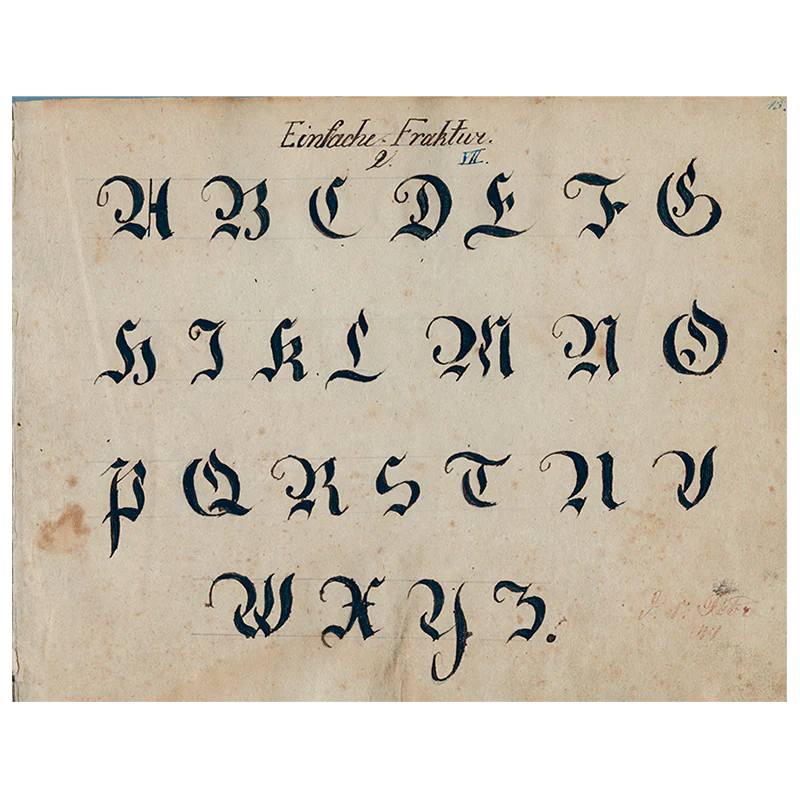 15.
Einfache Fraktur.
2. VII.
A B C D E F G
H I K L M N O
P Q R S T U V
W X Y Z.